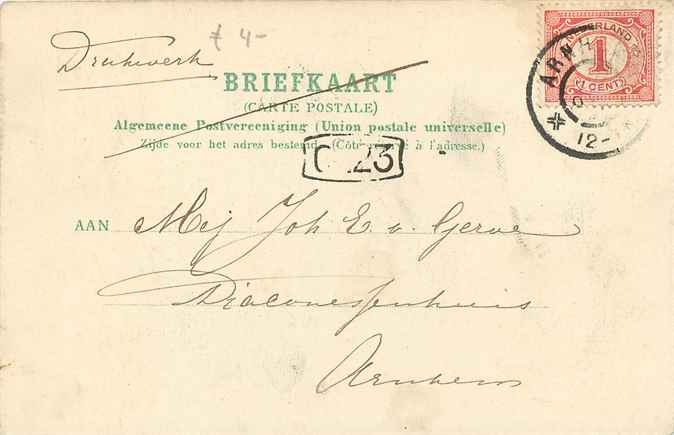 ƒ 4-
Drukwerk
BRIEFKAART
(CARTE POSTALE)
Algemeene Postvereeniging (Union postale universelle)
Zijde voor het adres bestemd. (Côté à l'adresse.)
23
NEDERLAND
1
1 CENT
ARNH
12-
AAN Mej Joh E. v. Gerve
Diaconessenhuis
Arnhem